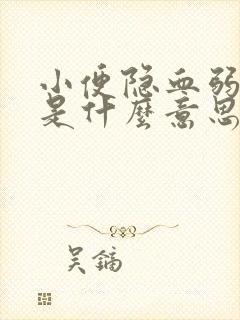 小便隐血弱
是什麼意思
吴镝